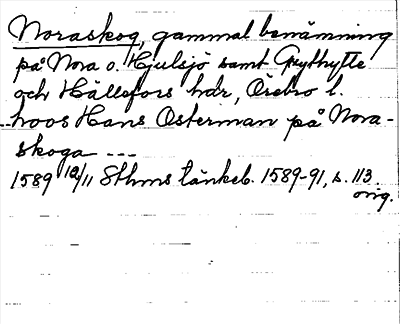 Noraskog, gammal benämning
på Nora o. Hjulsjö samt Grythytte
och Hällefors hdr, Örebro l.
--hoos Hans Osterman på Nora-
skoga ---
1589 12/11 Sthms tänkeb. 1589-91, s. 113.
orig.